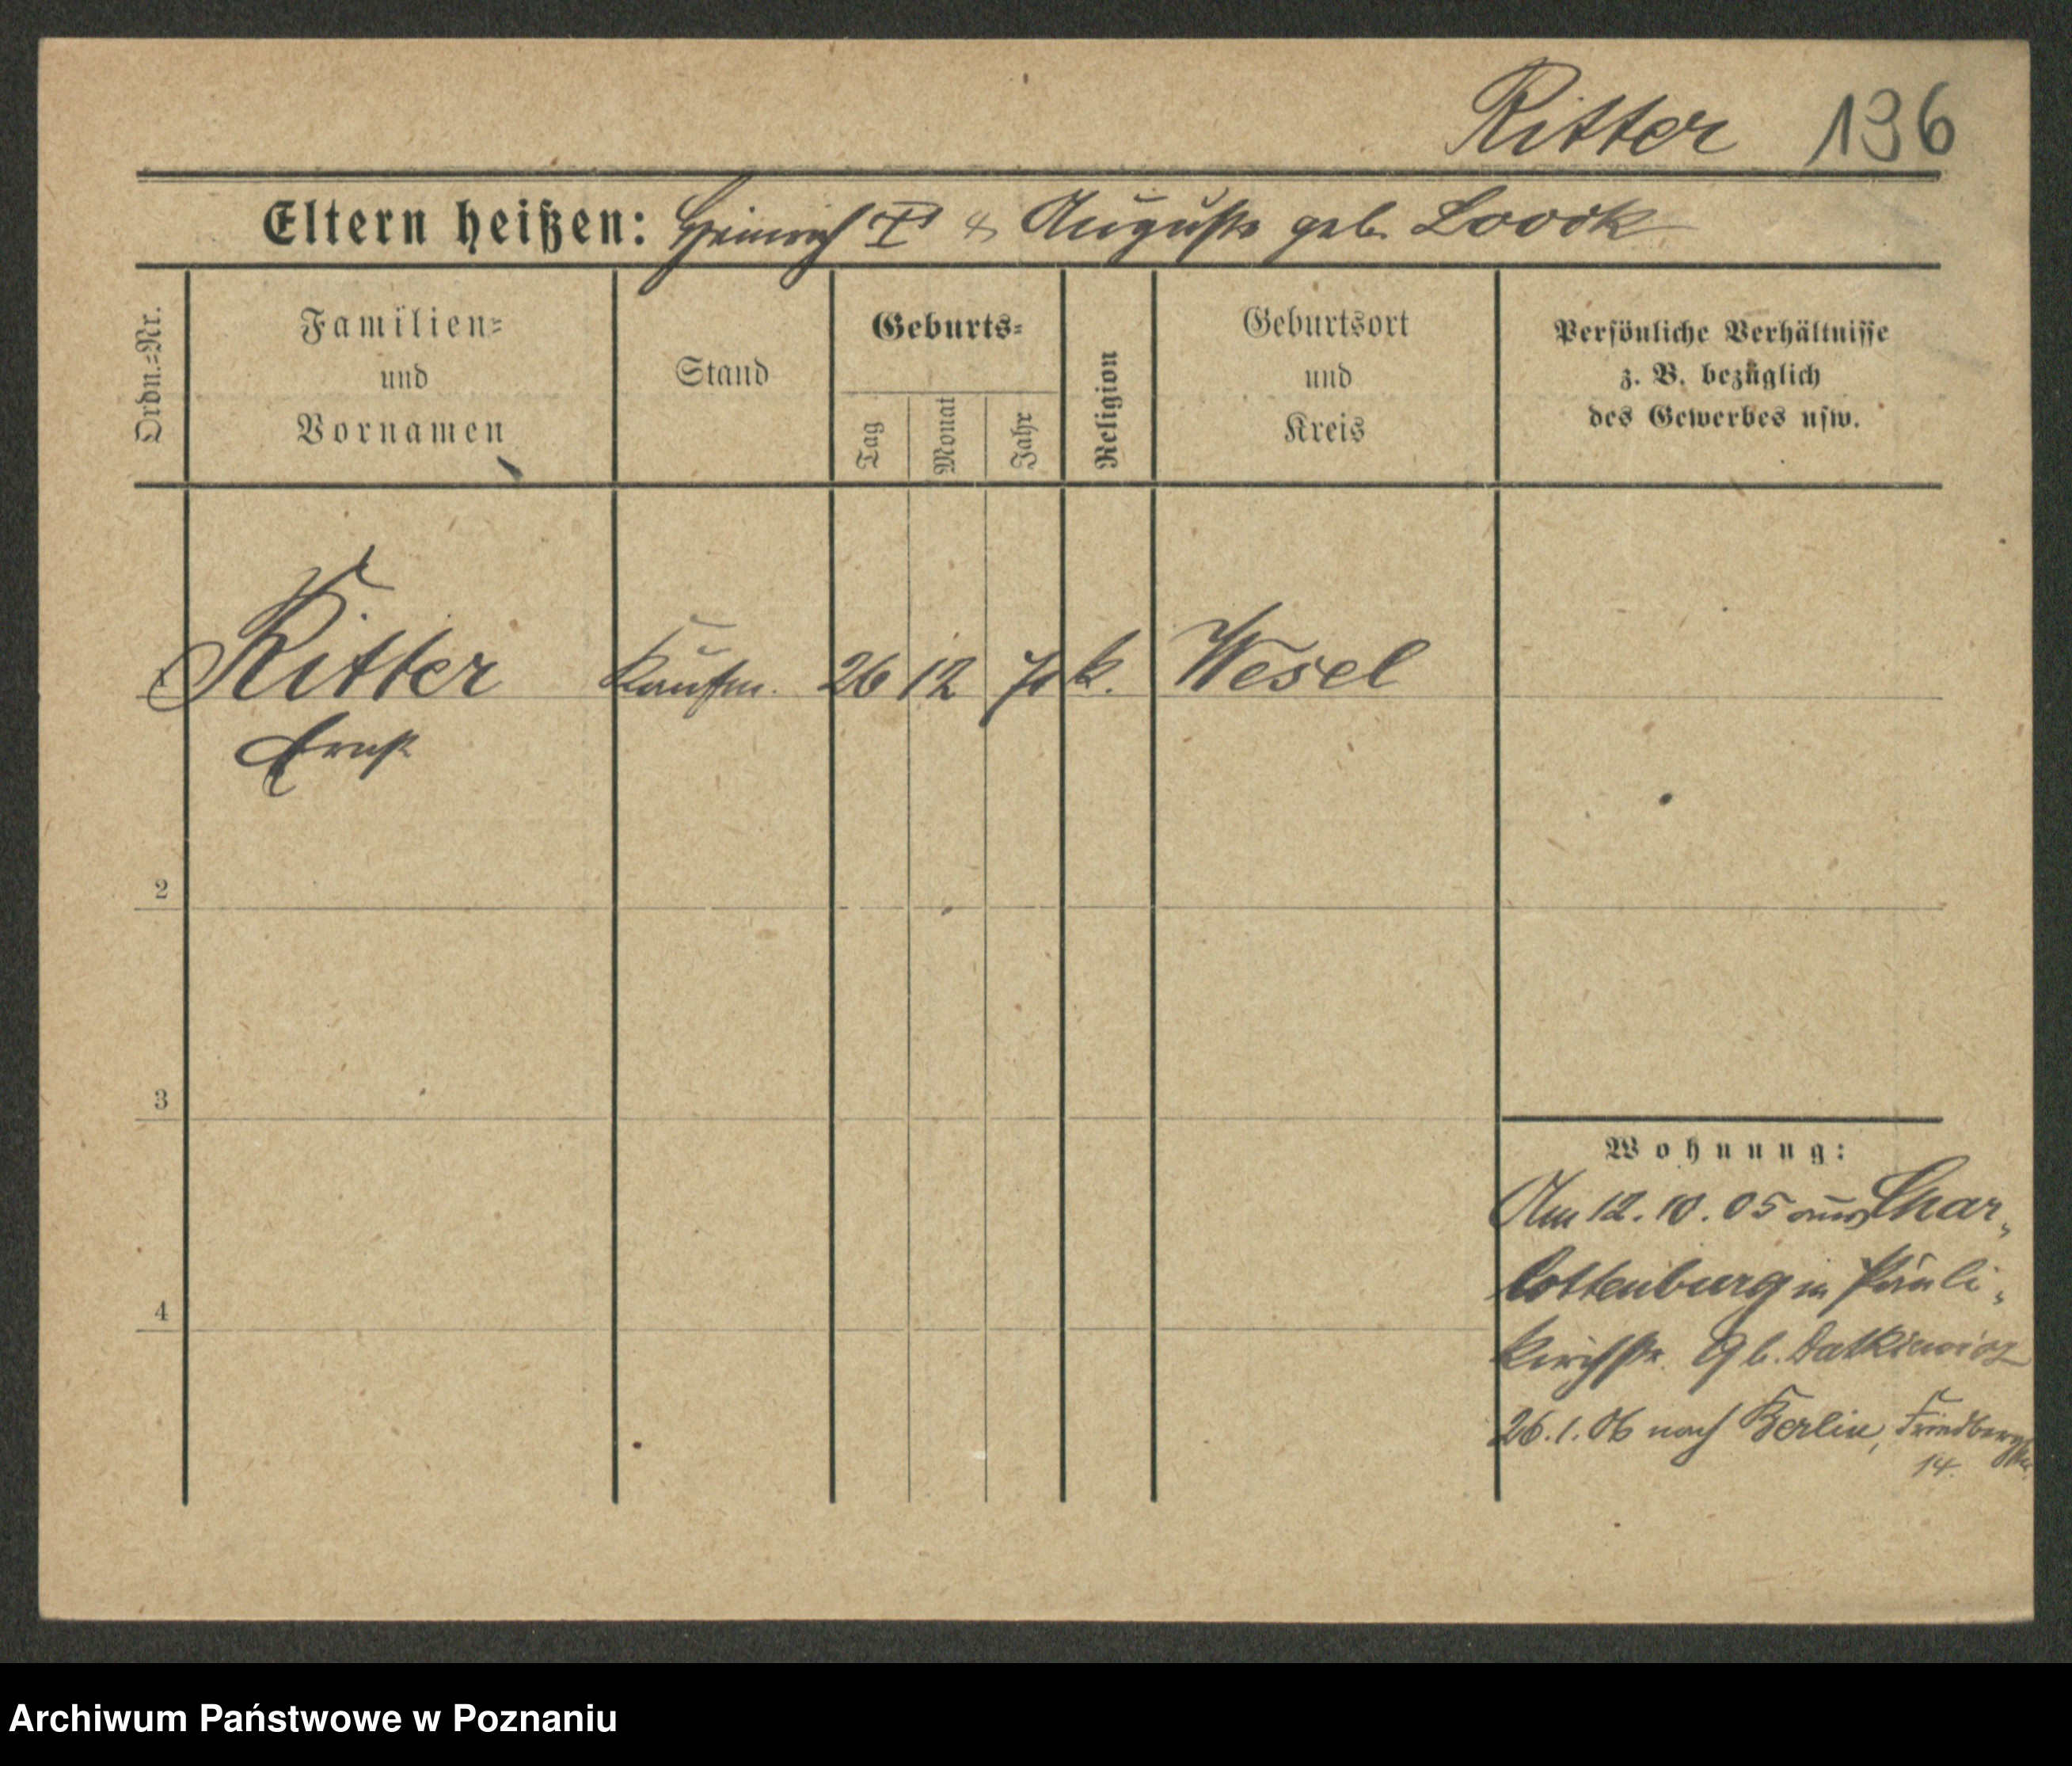 Ritter 136
Eltern heißen: Heinrich & Auguste geb. Loock
Ordn.=Nr.
Familien=
und
Vornamen
Stand
Geburts=
Tag
Monat
Jahr
Religion
Geburtsort
und
Kreis
Persönliche Verhältnisse
z. B. bezüglich
des Gewerbes usw.
Ritter Kaufm. 26 12 k. Wesel
Ernst
2
3
4
Wohnung:
Am 12. 10. 05 aus Char-
lottenburg in Pauli-
kirchstr. 9 b. Datkiewicz
26. 1. 06 nach Berlin, Friedbergstr.
14.
Archiwum Państwowe w Poznaniu